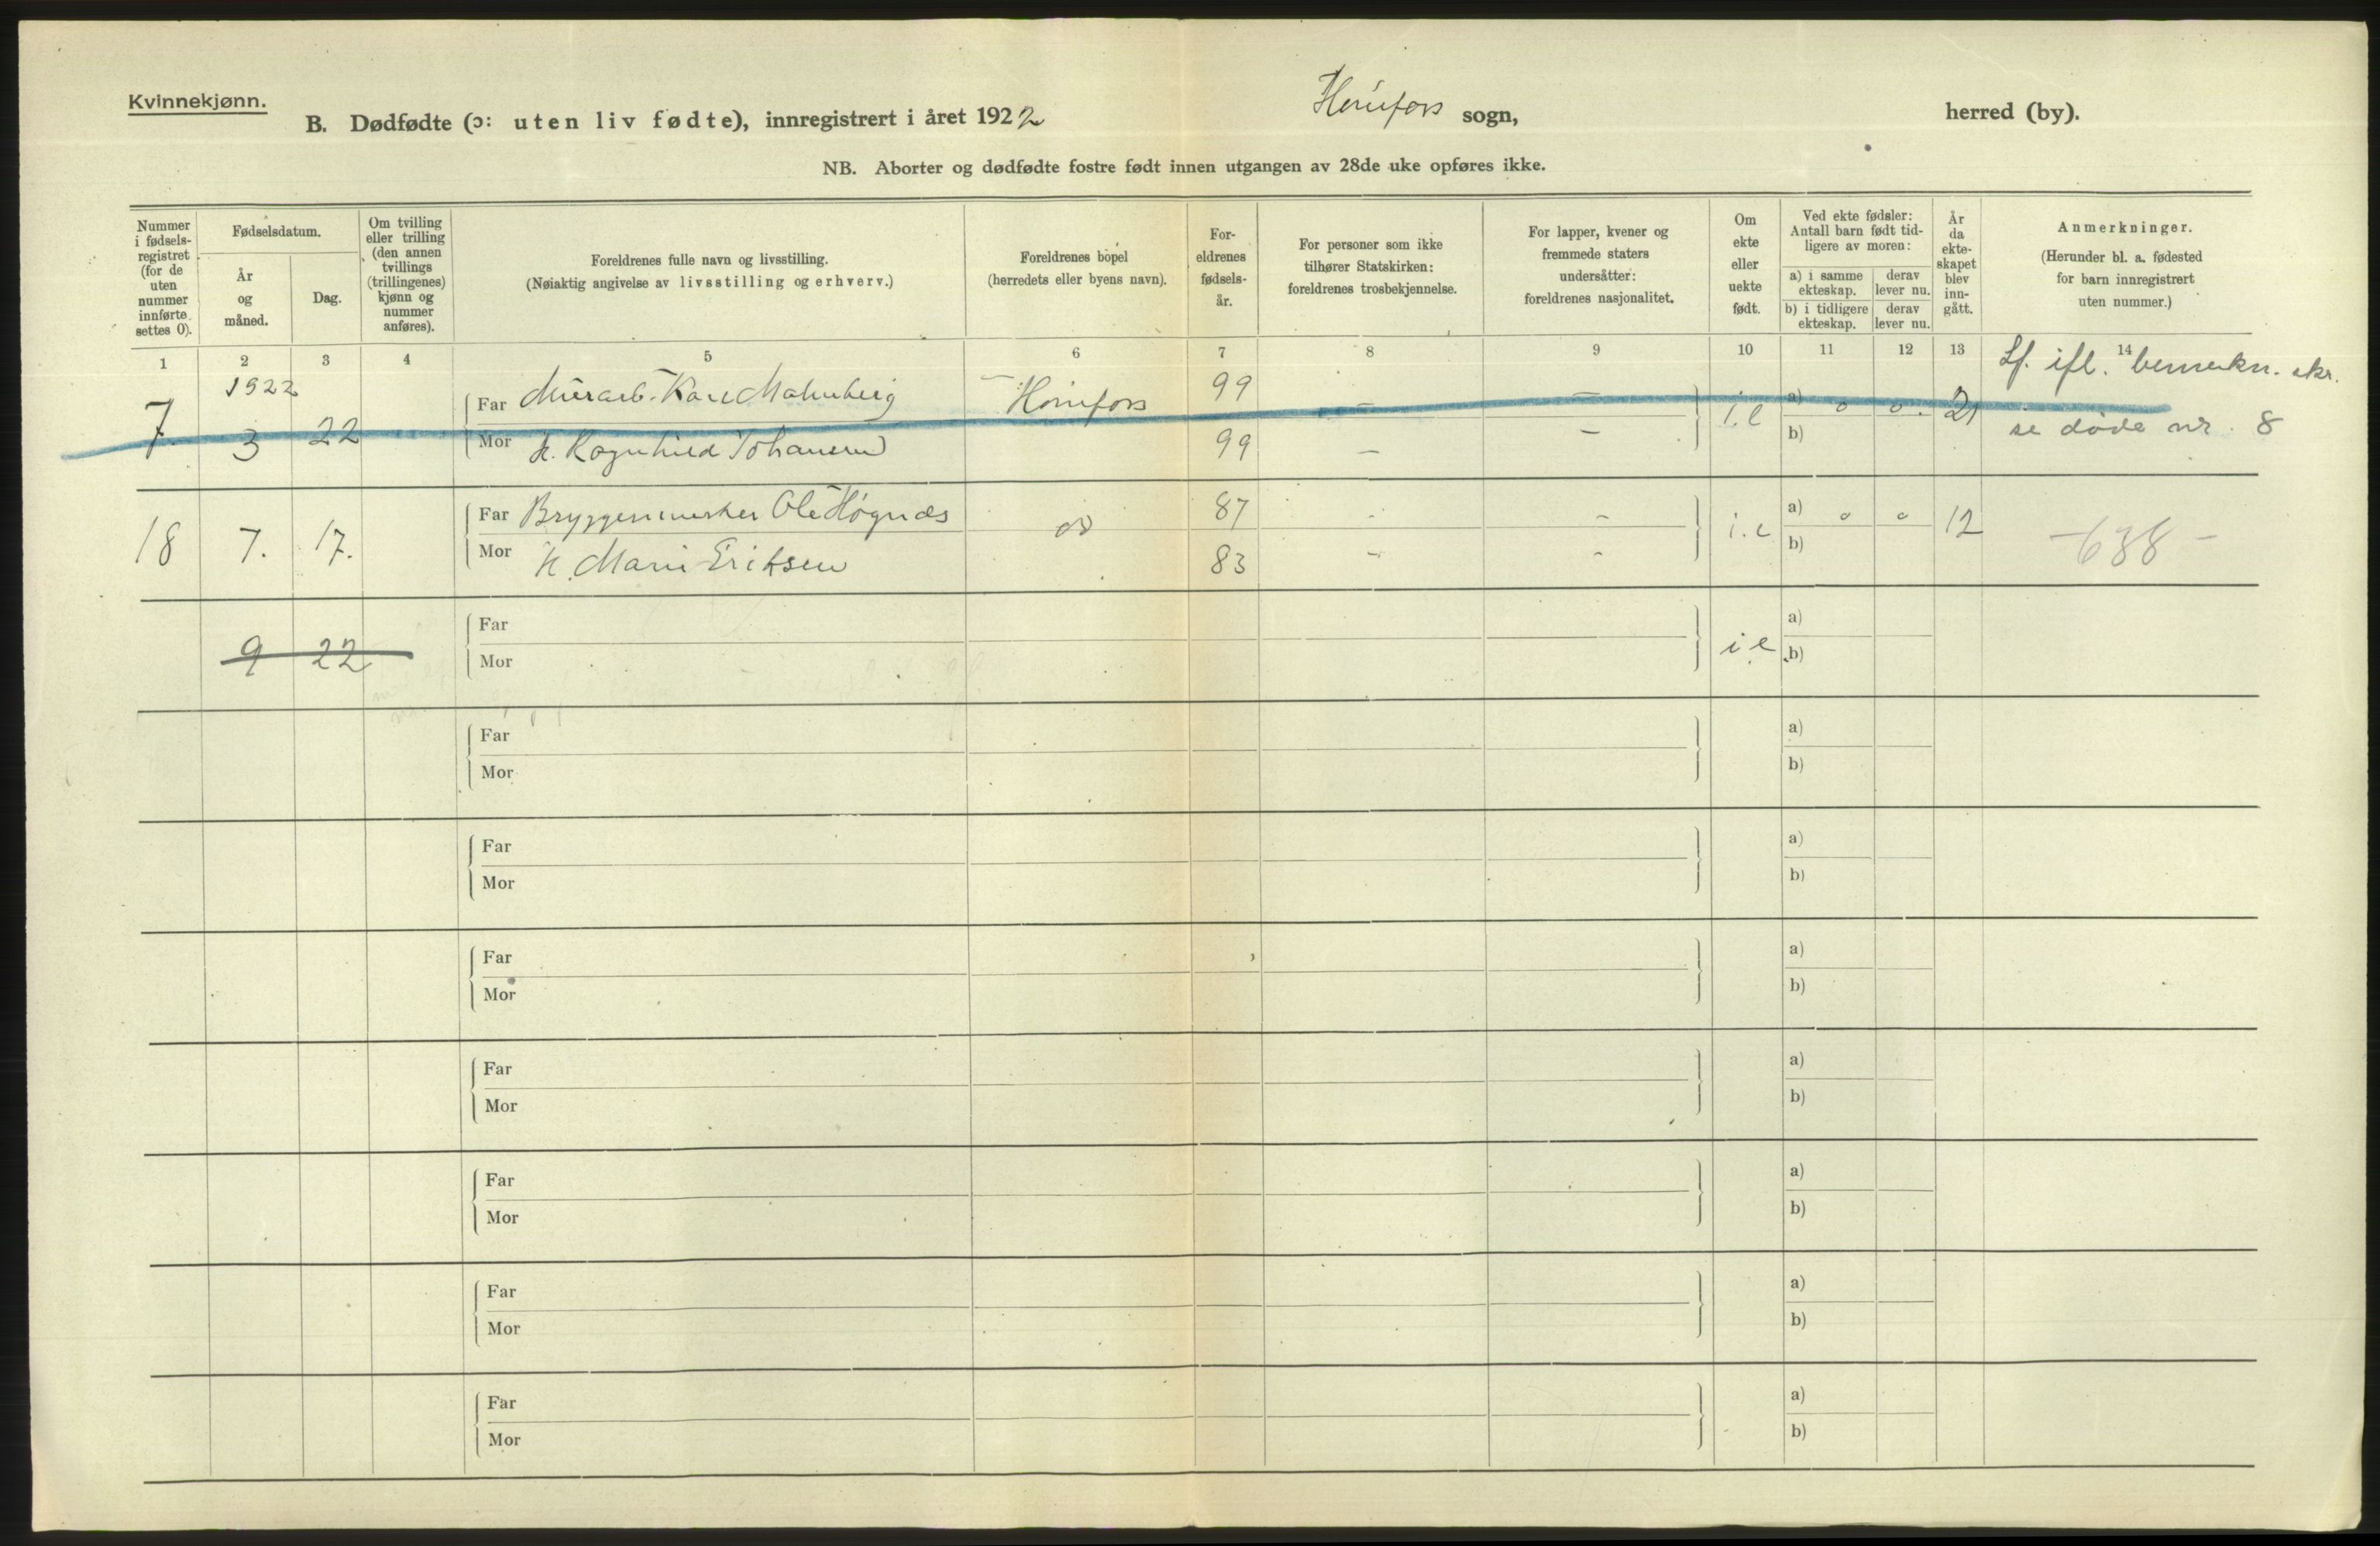 Kvinnekjønn.
B. Dødfødte (ɔ: uten liv fødte), innregistrert i året 1922 Hønefoss sogn, herred (by).
NB. Aborter og dødfødte fostre født innen utgangen av 28de uke opføres ikke.
Nummer i fødsels- registret (for de uten nummer innførte settes 0).
Fødselsdatum.
År og måned.
Dag.
Om tvilling eller trilling (den annen tvillings (trillingenes) kjønn og nummer anføres).
Foreldrenes fulle navn og livsstilling.
(Nøiaktig angivelse av livsstilling og erhverv.)
Foreldrenes bopel
(herredets eller byens navn).
For- eldrenes fødsels- år.
For personer som ikke tilhører Statskirken: foreldrenes trosbekjennelse.
For lapper, kvener og fremmede staters undersåtter: foreldrenes nasjonalitet.
Om ekte eller uekte født.
Ved ekte fødsler: Antall barn født tid- ligere av moren:
a) i samme ekteskap.
derav lever nu.
b) i tidligere ekteskap.
derav lever nu.
År da ekte- skapet blev inn- gått.
Anmerkninger.
(Herunder bl. a. fødested for barn innregistrert uten nummer.)
1 2 3 4 5 6 7 8 9 10 11 12 13 14
1922 Lf. ifl. bemerkn. skr.
Far Murarb. Karl Malmberg Hønefoss 99 – – a) 0 0. 21
7. 3 22 i.e se døde nr. 8
Mor H. Ragnhild Johansen 99 – – b)
Far Bryggerimester Ole Høgnæs do 87 - - a) 0 0 12
18 7. 17. i.e -638-
Mor H. Marie Eriksen 83 - - b)
Far a)
9 22 i e
Mor b)
Far a)
Mor b)
Far a)
Mor b)
Far a)
Mor b)
Far a)
Mor b)
Far a)
Mor b)
Far a)
Mor b)
Far a)
Mor b)